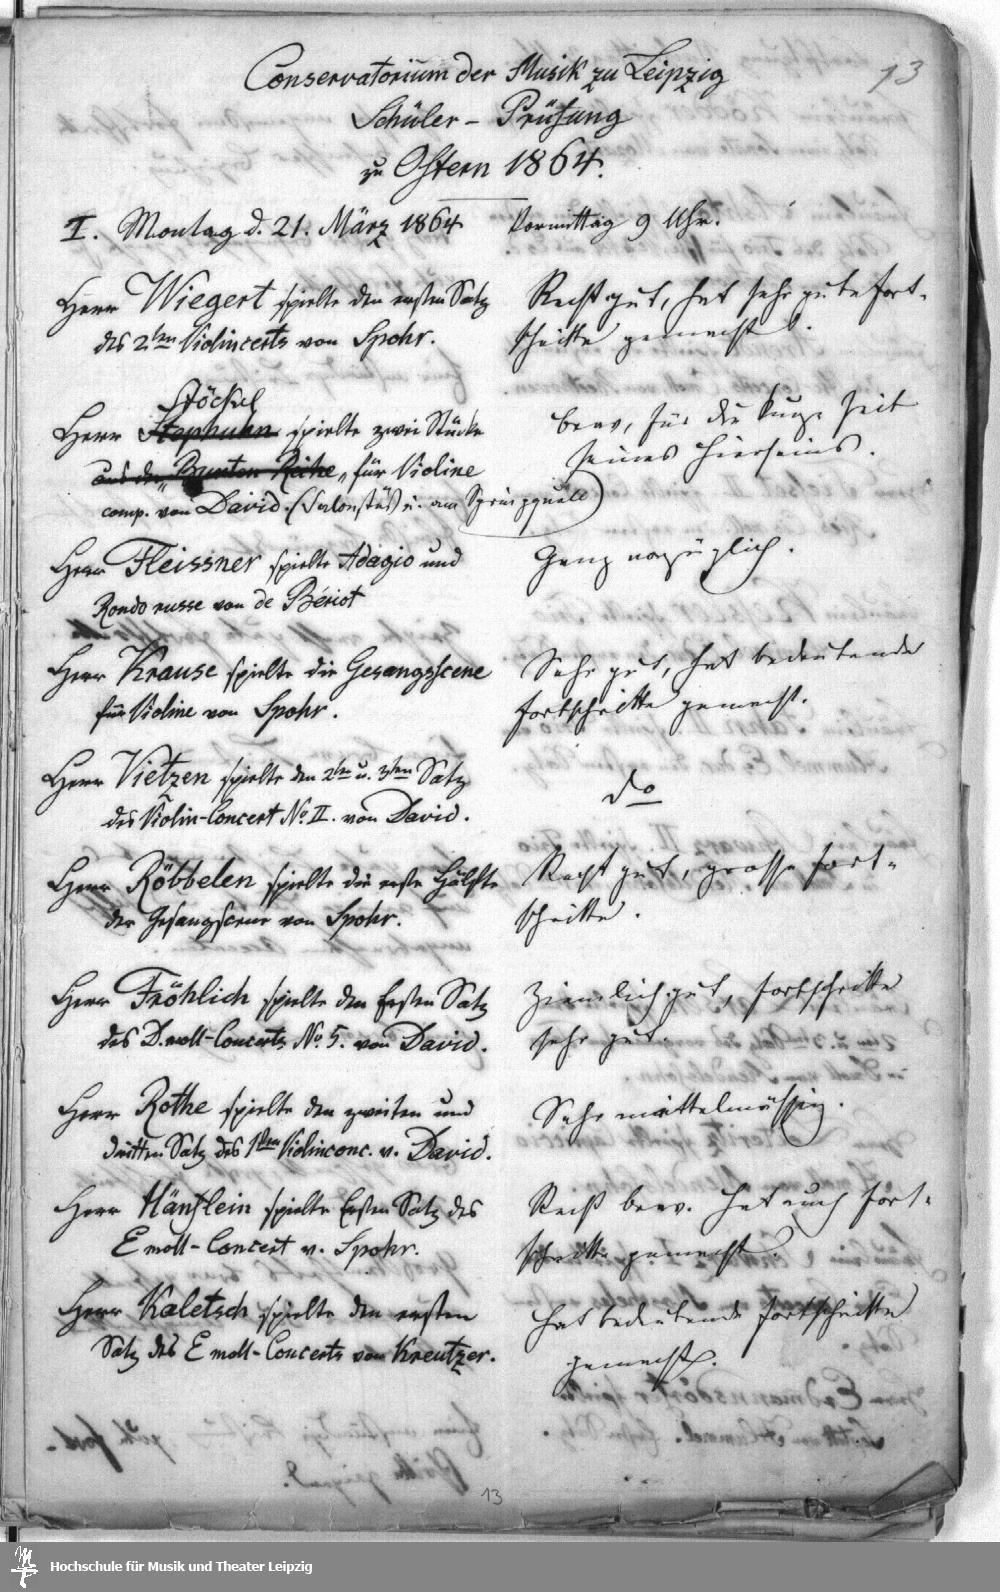 13
Conservatorium der Musik zu Leipzig
Schüler-Prüfung
zu Ostern 1864.
I. Montag d. 21. März 1864 Vormittag 9 Uhr.
Herr Wiegert spielte den ersten Satz
des 2ten Violincerts von Spohr.
Recht gut, hat sehr gute Fort-
schritte gemacht.
Stöckel
Herr Stephuhn spielte zwei Stücke
aus der „Bunten Reihe“ für Violine
comp. von David. (Salonstück u. am Springquell)
brav, für die kurze Zeit
seines Hierseins.
Herr Fleissner spielte Adagio und
Rondo russe von de Bériot
Ganz vorzüglich.
Herr Krause spielte die Gesangsscene
für Violine von Spohr.
Sehr gut, hat bedeutende
Fortschritte gemacht.
Herr Vietzen spielte den 2ten u. 3ten Satz
des Violin-Concert No. II. von David.
do
Herr Röbbelen spielte die erste Hälfte
der Gesangscene von Spohr.
Recht gut, grosse Fort-
schritte.
Herr Fröhlich spielte den Ersten Satz
des D.moll-Concerts No. 5. von David.
Ziemlich gut, Fortschritte
sehr gut.
Herr Rothe spielte den zweiten und
dritten Satz des 1sten Violinconc. v. David.
Sehr mittelmässig.
Herr Hänflein spielte Ersten Satz des
E moll-Concert v. Spohr.
Recht brav. hat auch Fort-
schritte gemacht.
Herr Kaletsch spielte den ersten
Satz des E moll-Concerts von Kreutzer.
hat bedeutende Fortschritte
gemacht.
13
Hochschule für Musik und Theater Leipzig